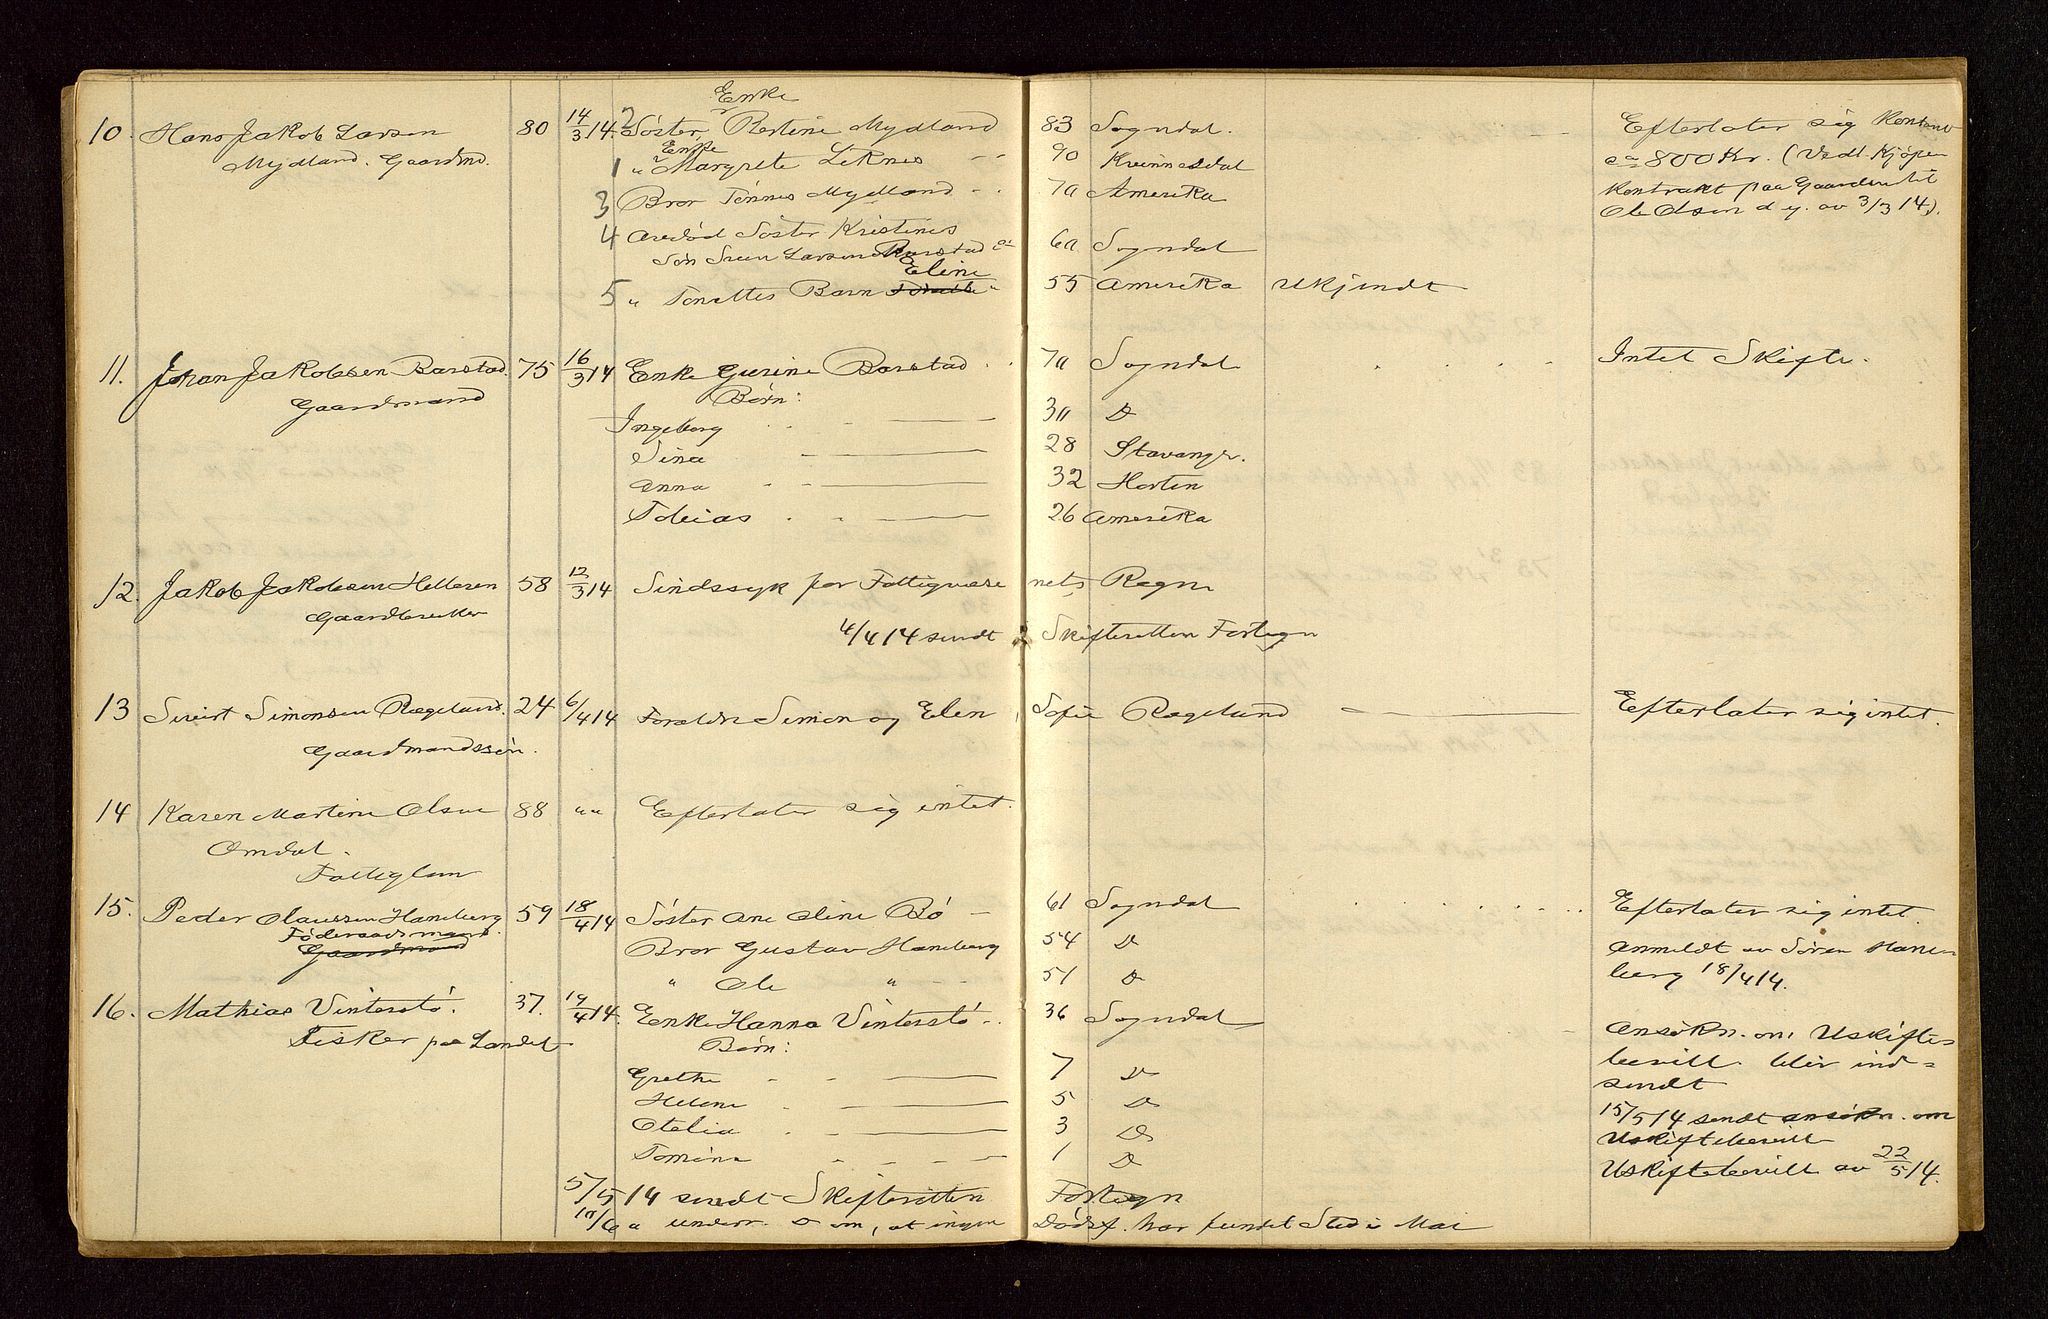 Enke
10. Hans Jakob Larsen 80 14/3 14. 2 Søster, Bertine Mydland 83 Sogndal. Efterlater sig Kontant
Mydland. Gaardmd. Enke
1 " Margrete Liknes 90 Kvinnesdal ca 800 Kr. (Vedl. Kjøpe-
3 Bror Tønnes Mydland 70 Amerika Kontrakt paa Gaarden til
Ole Olsen d.y. av 3/3 14).
4 avdød Søster Kristines
Søn Sven Larsen Barstad 60 Sogndal
Eline
5 " Tonettes Barn " 55 Amerika Ukjendt
11. Johan Jakobsen Barstad. 75 16/3 14 Enke Gurine Barstad 70 Sogndal Intet Skifte.
Gaardmand Børn:
Ingeborg 30 D
Sina 28 Stavanger.
Anna 32 Horten
Tobias 26 Amerika
12. Jakob Jakobsen Helleren 58 12/3 14 Sindssyk for Fattigvæse nets Regn
Gaardbruker 4/4 14 sendt Skifteretten Fortegn
13 Sivert Simonsen Rægeland. 24 6/4 14 Foreldre Simon og Elen Sofie Rægeland Efterlater sig intet.
Gaardmandssøn.
14 Karen Martine Olsen 88 " " Efterlater sig intet.
Omdal.
Fattiglem
15. Peder Olaussen Haneberg 59 18/4 14 Søster Ane Oline Bø 61 Sogndal Efterlater sig intet.
Føderaadsmand.
Gaardmand Bror Gustav Haneberg 54 D Anmeldt av Søren Hane-
" Ole " 51 D berg 18/4 14.
16. Mathias Vinterstø. 37. 19/4 14. Enke Hanna Vinterstø 36 Sogndal Ansøkn. om Uskifte-
Fisker paa Landet Børn: bevill. blir ind-
Grethe 7 D sendt
Helene 5 D 15/5 14 sendt ansøkn. om
Otelia 3 D Uskiftebevill
Tomine 1 D Uskiftebevill av 22/5 14.
5/5 14 sendt Skifteretten Fortegn
10/6 " underr. D om, at ingen Dødsf. har fundet Sted i Mai